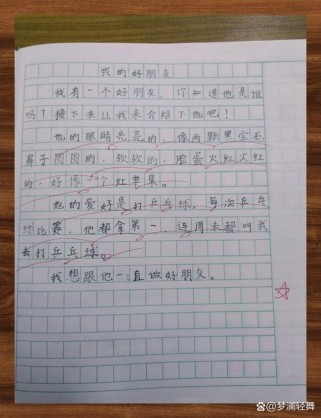 我的好朋友
我有一个好朋友，你知道他是谁
吗？接下来让我来介绍下他吧！
他的眼睛亮亮的，像两颗黑宝石，
鼻子圆圆的，软软的，脸蛋火红火红
的，好像个红苹果。
他的爱好是打乒乓球，每次乒乓
球比赛，他都拿第一，连周末都叫我
去打乒乓球。
我想跟他一直做好朋友。
@梦澜轻舞